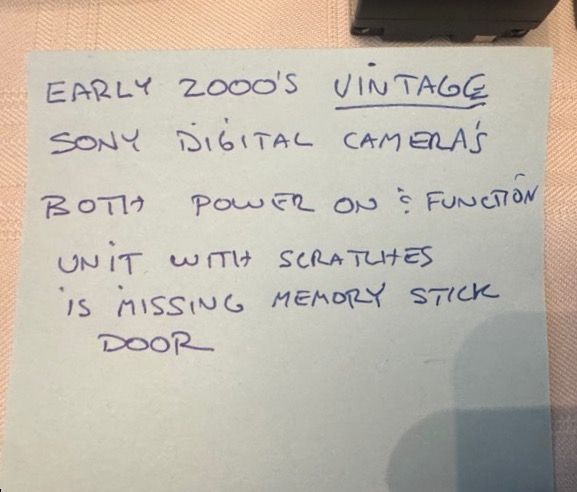 EARLY 2000'S VINTAGE
SONY DIGITAL CAMERA'S
BOTH POWER ON & FUNCTION
UNIT WITH SCRATCHES
IS MISSING MEMORY STICK
DOOR